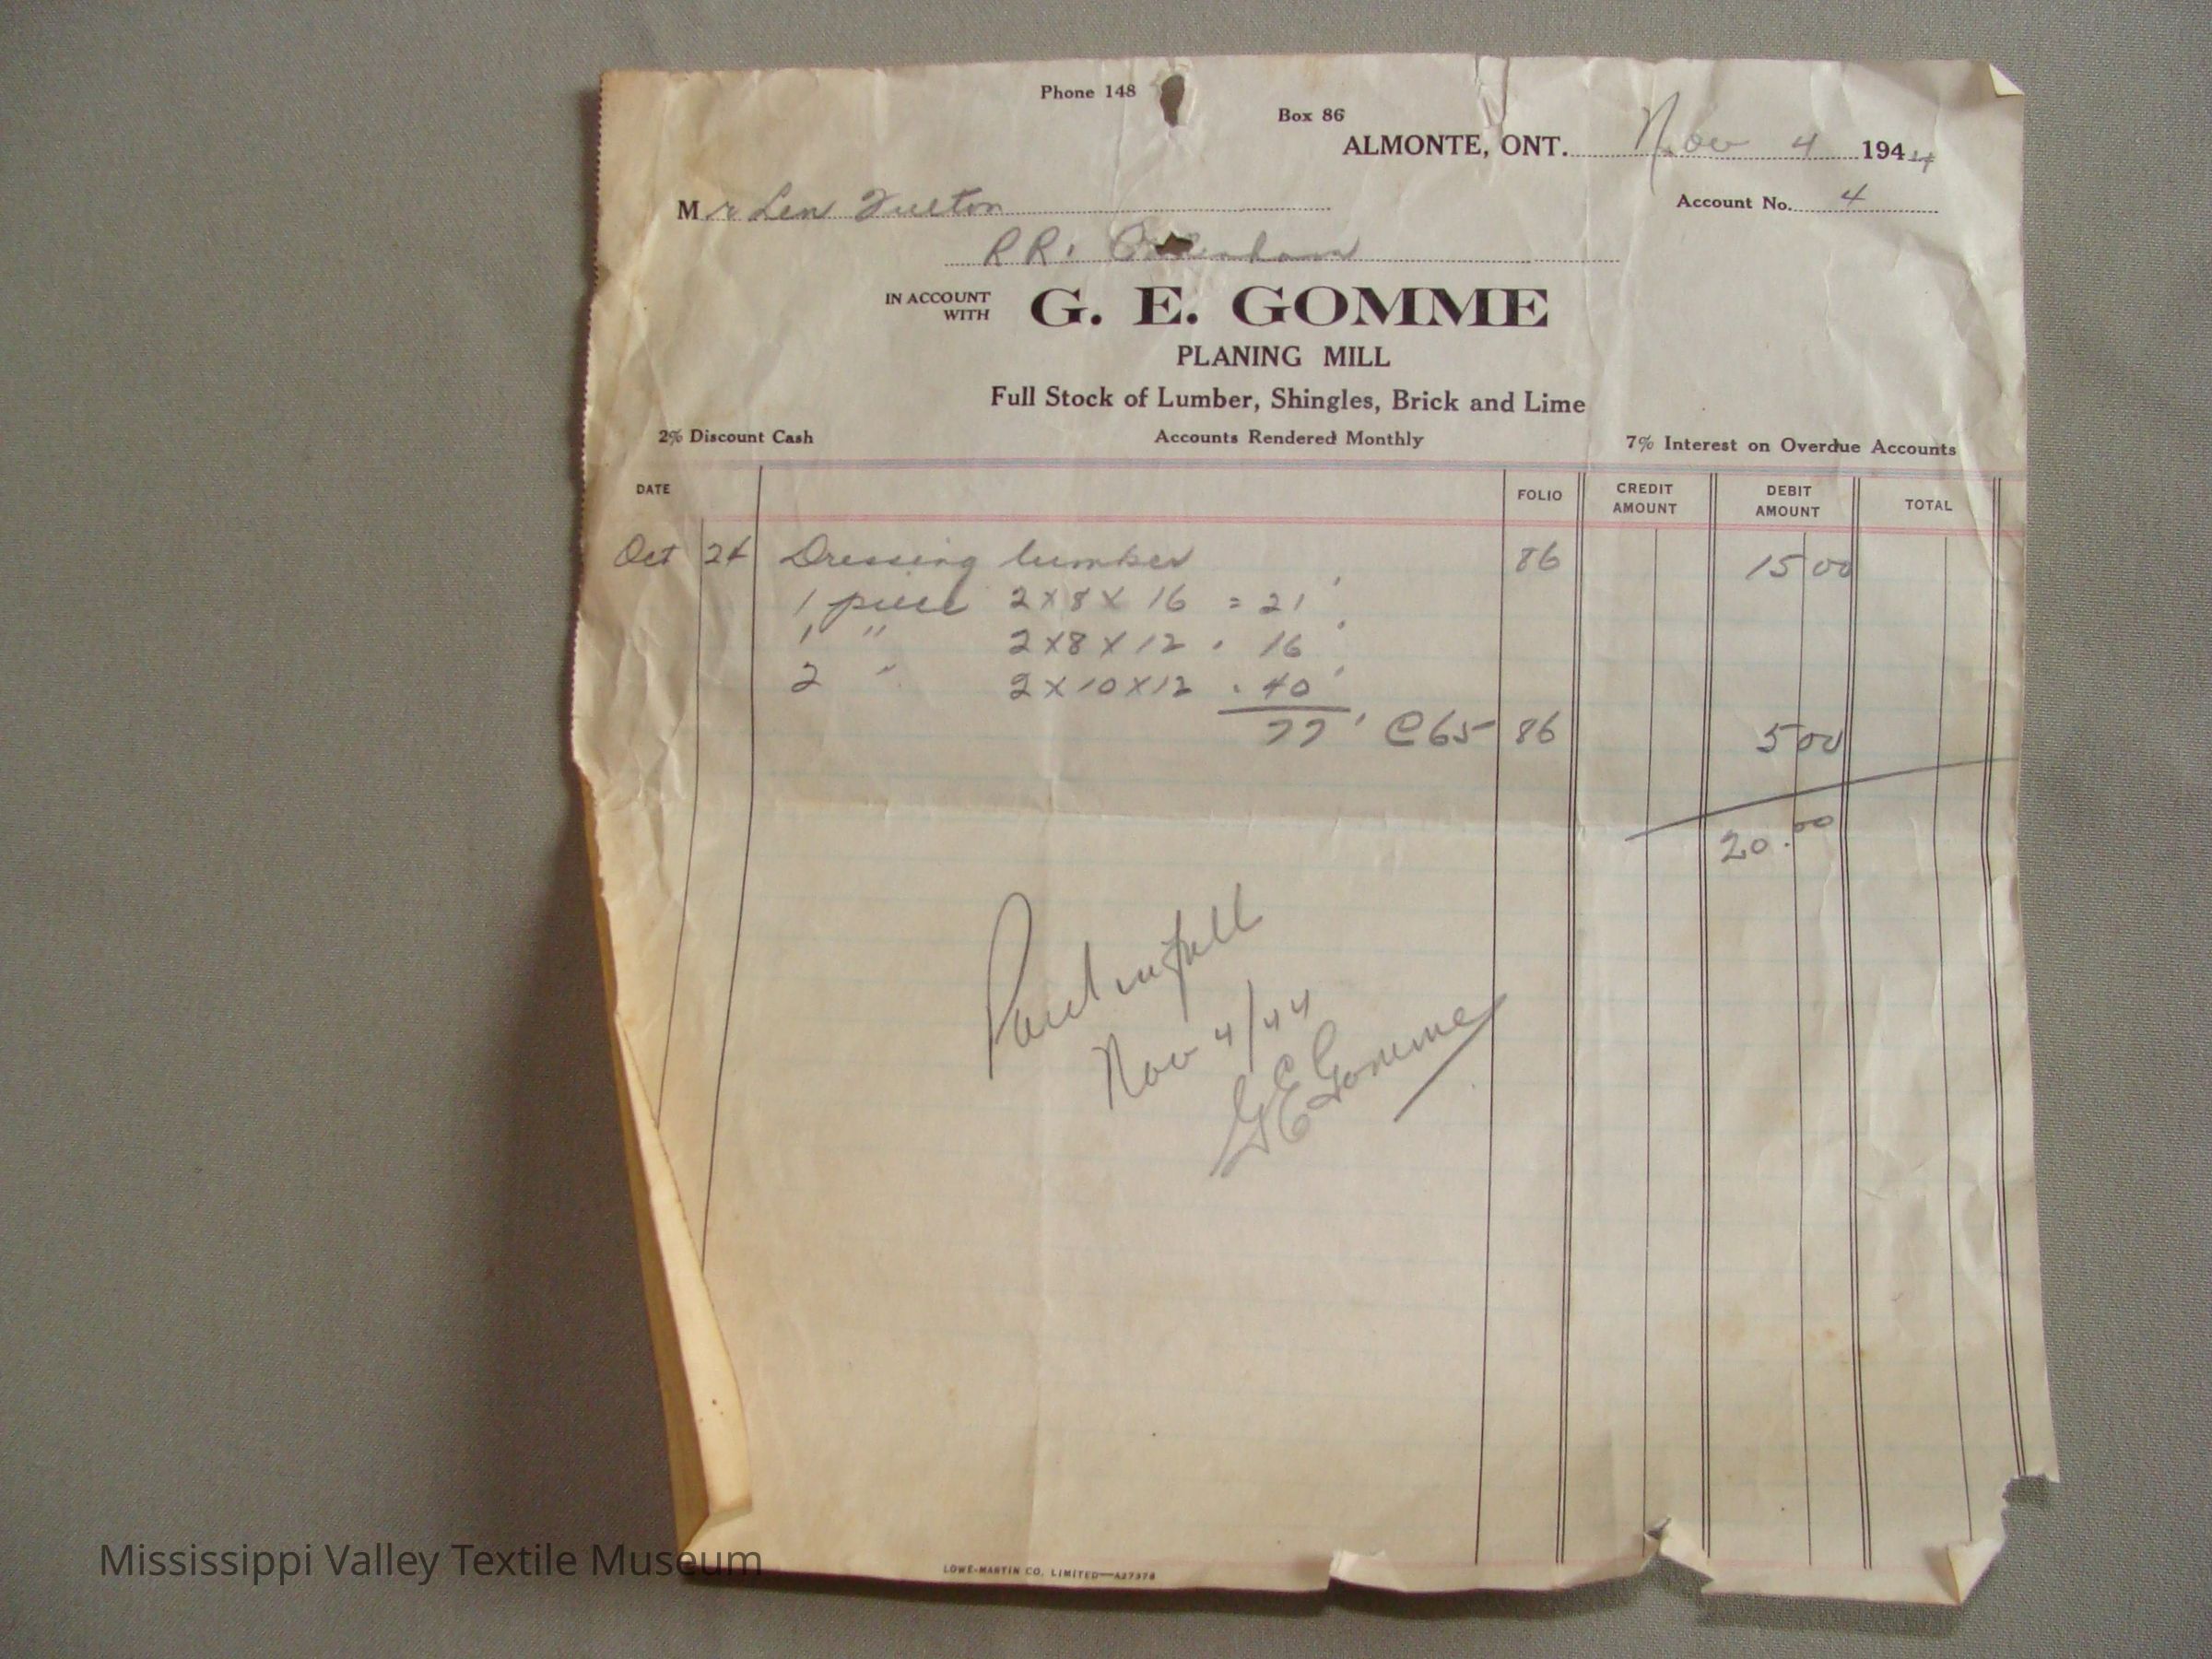 Phone 148
Box 86
ALMONTE, ONT. Nov 4 1944
Mr Len Fulton
Account No. 4
RR.
IN ACCOUNT WITH G. E. GOMME
PLANING MILL
Full Stock of Lumber, Shingles, Brick and Lime
2% Discount Cash Accounts Rendered Monthly 7% Interest on Overdue Accounts
DATE FOLIO CREDIT AMOUNT DEBIT AMOUNT TOTAL
Oct 24 Dressing lumber 86 15 00
1 piece 2 x 8 x 16 = 21'
1 " 2 x 8 x 12 . 16'
2 " 2 x 10 x 12 . 40'
77' @ 65 86 5 00
20.00
Paid in full
Nov 4/44
G E Gomme
LOWE-MARTIN CO. LIMITED—A27378
Mississippi Valley Textile Museum